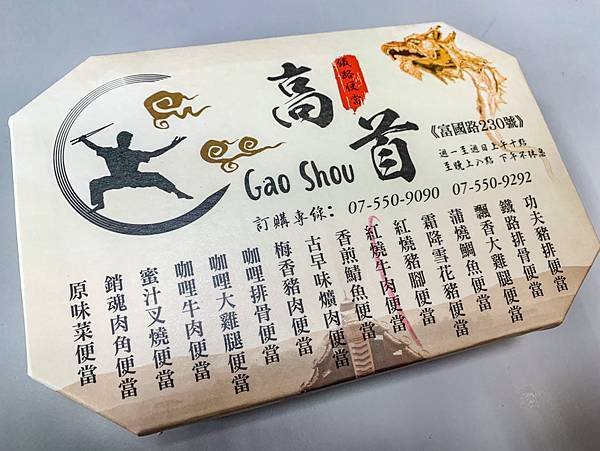 鐵路便當
高首
Gao Shou
《富國路230號》
週一至週日上午十點
至晚上八點 下午不休息
訂購專線: 07-550-9090 07-550-9292
功夫豬排便當
鐵路排骨便當
飄香大雞腿便當
蒲燒鯛魚便當
霜降雪花豬便當
紅燒豬腳便當
紅燒牛肉便當
香煎鯖魚便當
古早味爌肉便當
梅香豬肉便當
咖哩排骨便當
咖哩大雞腿便當
咖哩牛肉便當
蜜汁叉燒便當
銷魂肉角便當
原味菜便當